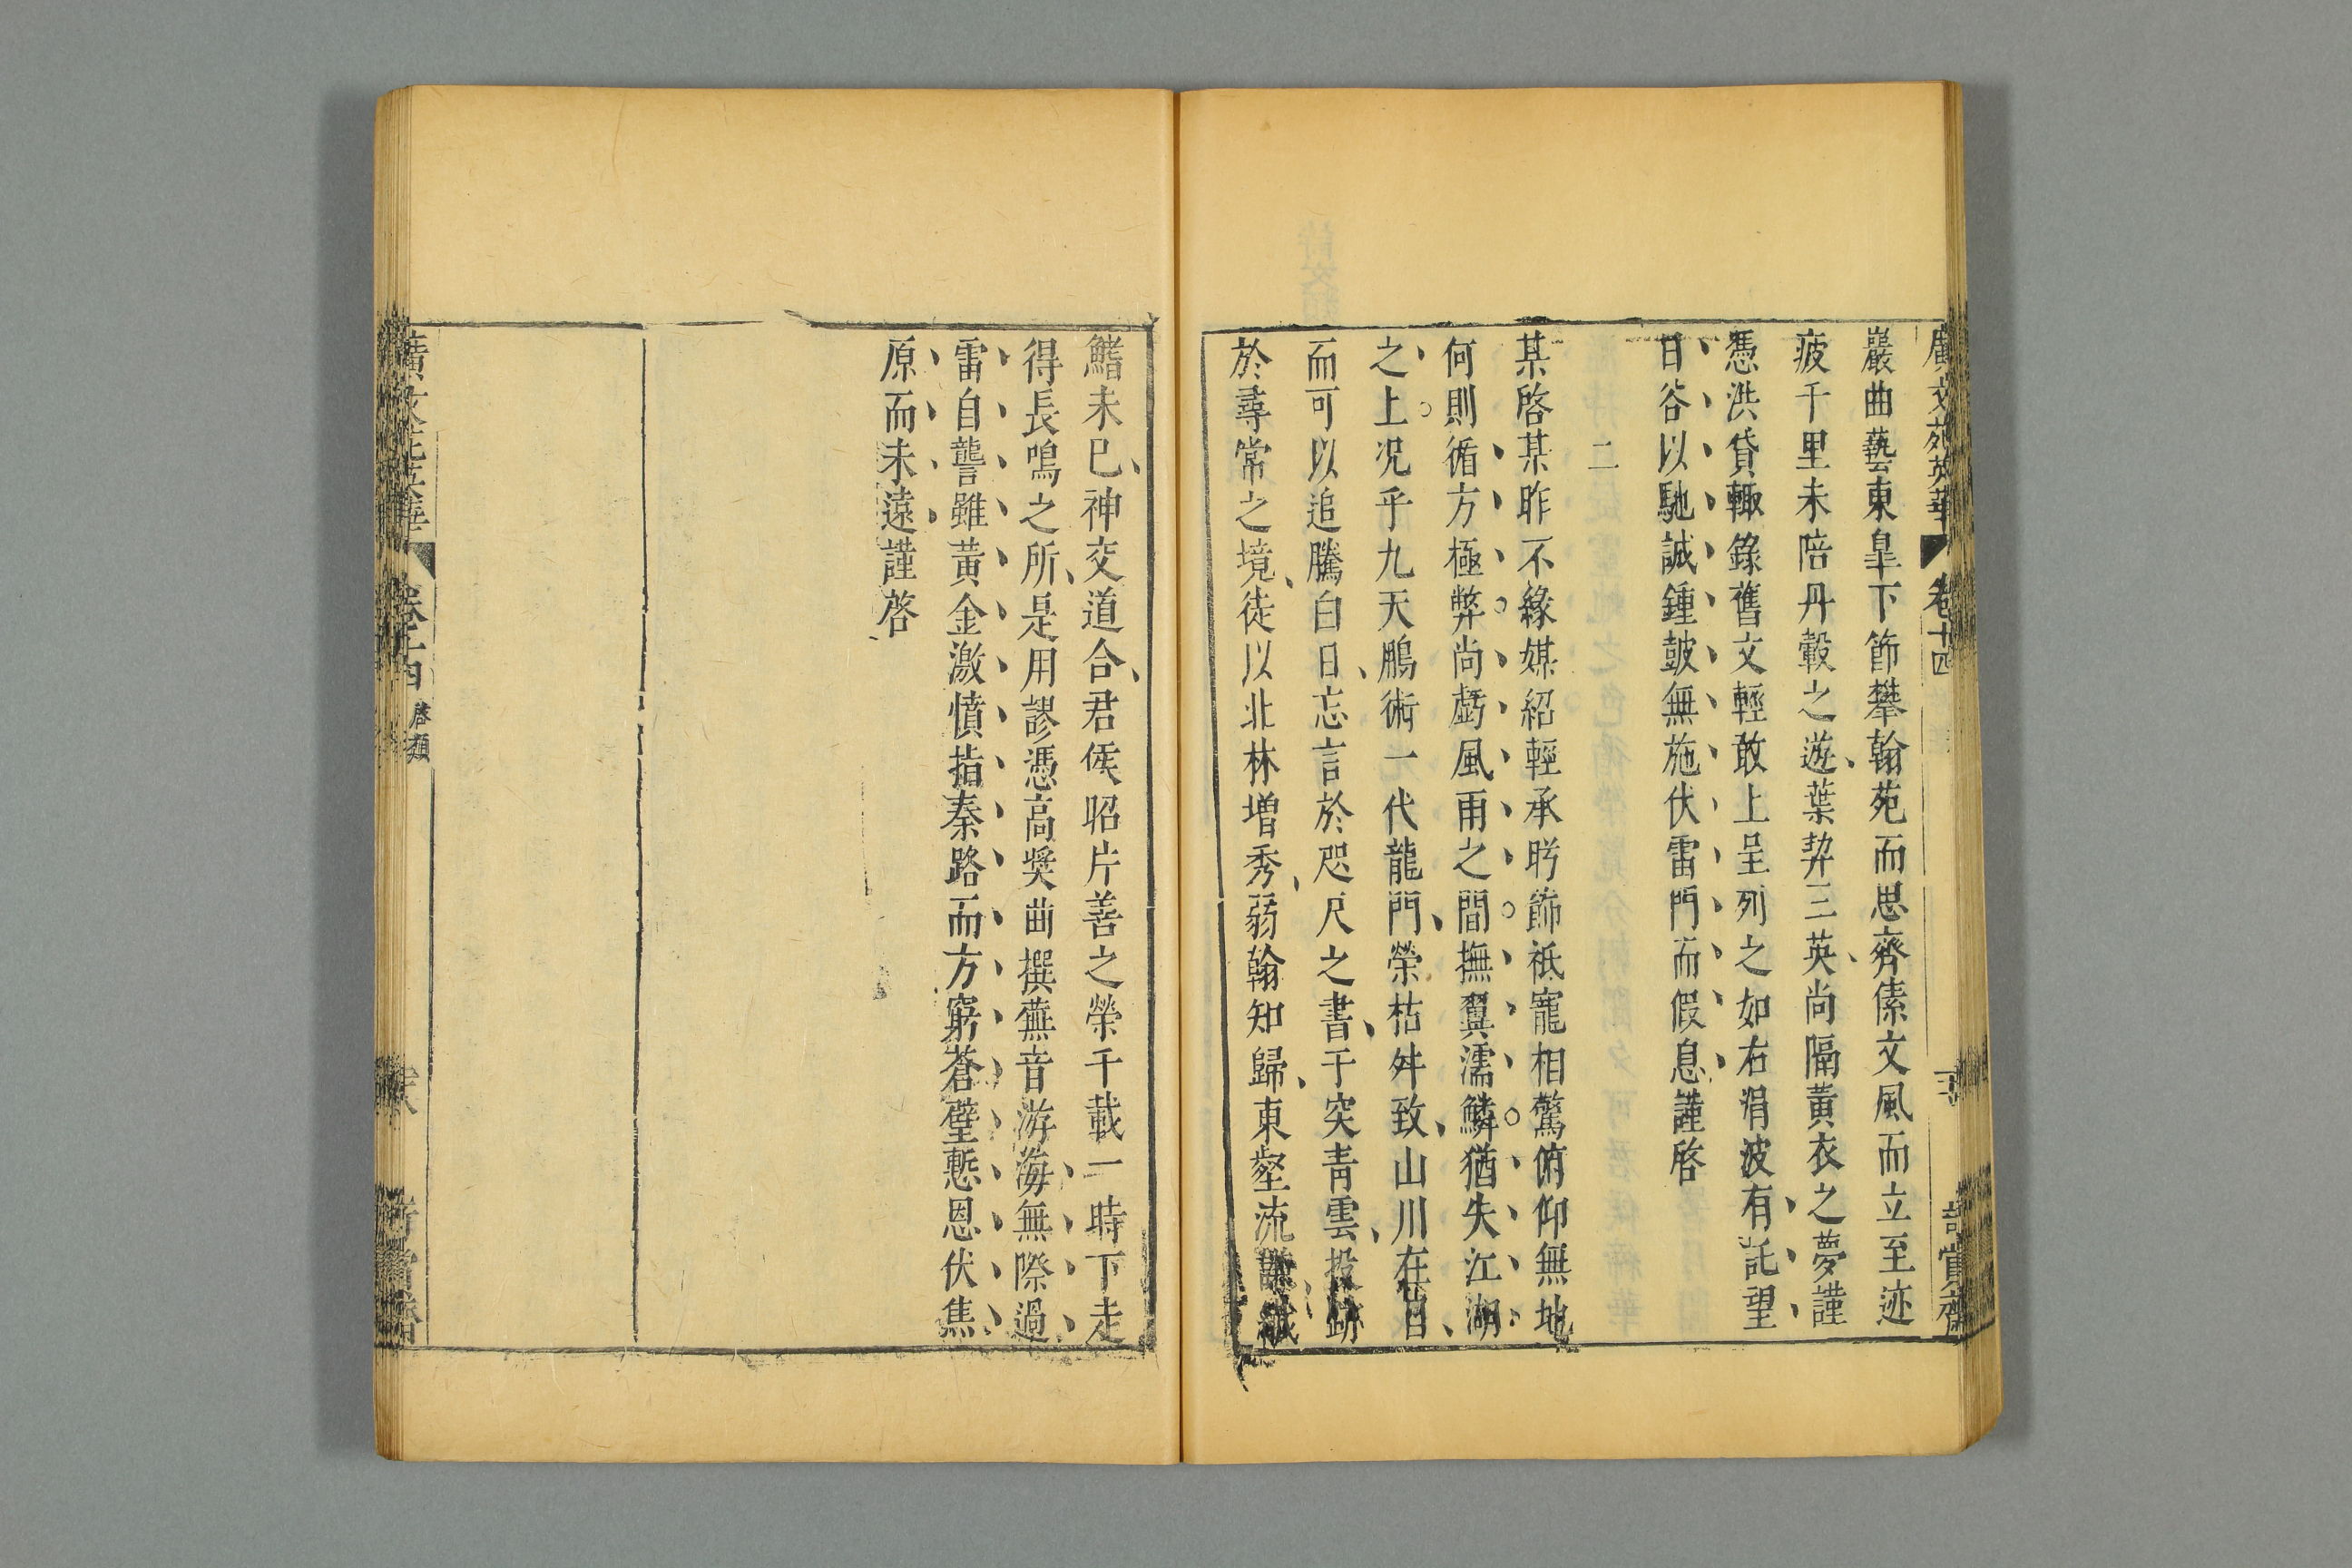 廣文苑英華 卷十四
巖曲藝東皐下節攀翰苑而思齊傃文風而立至迹
疲千里未陪丹轂之遊葉契三英尚隔黃衣之夢謹
憑洪貸輙錄舊文輕敢上呈列之如右涓波有託望
日谷以馳誠鍾皷無施伏雷門而假息謹啓
二
某啓某昨不緣媒紹輕承眄飾祗寵相驚俯仰無地
何則循方極弊尚虧風雨之間撫翼濡鱗猶失江湖
之上况乎九天鵬術一代龍門榮枯舛致山川在目
而可以追騰白日忘言於咫尺之書干突青雲投跡
於尋常之境徒以北林增秀翰知歸東壑流謙纎
鰭未已神交道合君侯昭片善之榮千載一時下走
得長鳴之所是用謬憑高奬曲撰蕪音游海無際過
雷自讋雖黃金激憤指秦路而方窮蒼璧慙恩伏焦
原而未遠謹啓
廣文苑英華 卷十四 啓類